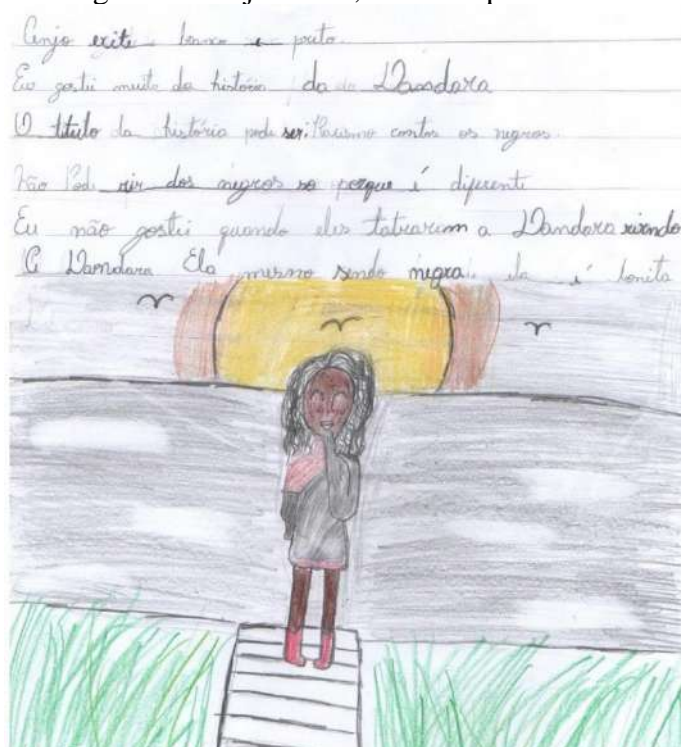 Anjo exite branco e preto.
Eu gostei muito da história da Dandara
O titulo da história pode ser: Racismo contra os negros.
Não Pode rir dos negros so porque é diferente
Eu não gostei quando eles tratraram a Dandara rirndo
A Dandara Ela mesmo sendo negra. ela é bonita